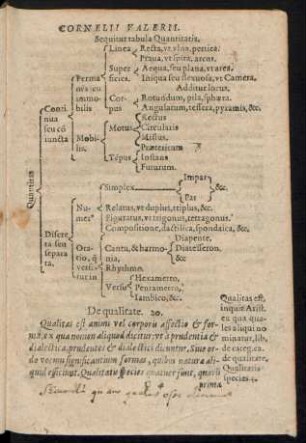 CORNELII VALERII.
Sequitur tabula Quantitatis.
Quantitas
Continua seu cōiuncta
Permanēs cu immobilis
Linea
Recta, vt vlna, pertica.
Praua, vt spira, arcus.
Superficies.
Aequa, seu plana, vt area.
Iniqua seu flexuosa, vt Camera.
Additur locus.
Corpus
Rotundum, pila, sphæra.
Angularum, tessera, pyramis, &c.
Mobilis.
Motus
Rectus
Circularis
Mistus.
Tēpus
Præteritum
Instans
Futurum.
Discreta seu separata.
Numerꝰ
Simplex
Impar
Par
&c.
Relatus, vt duplus, triplus, &c.
Figuratus, vt trigonus, tetragonus.
Oratio, q̃ versatur in
Compositione, dactilica, spondaica, &c.
Cantu, & harmonia,
Diapente.
Diatesseron.
&c.
Rhythmo.
Versu
Hexametro.
Pentametro,
Iambico, &c.
De qualitate. 20.
Qualitas est animi vel corporis affectio & forma, ex qua
non aliquod dicitur: vt à prudentia &
dialectica, prudentes & dialectici dicuntur. Siue ordo
vocum significantium formas, quibus natura aliquid
efficit. Qualitatis species quatuor sunt, quarū
prima
Qualitas est,
inquit Aristoteles
ex qua quales
aliqui nominatur, lib.
de categoria
de qualitate.
Qualitatis
species 4.